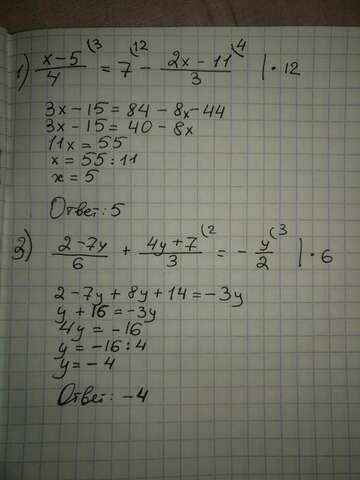 1) (x-5)/4 (3 = 7 (12 - (2x-11)/3 (4 | · 12
3x-15 = 84 - 8x - 44
3x-15 = 40 - 8x
11x = 55
x = 55 : 11
x = 5
Ответ: 5
2) (2-7y)/6 + (4y+7)/3 (2 = - y/2 (3 | · 6
2-7y+8y+14 = -3y
y+16 = -3y
4y = -16
y = -16 : 4
y = -4
Ответ: -4